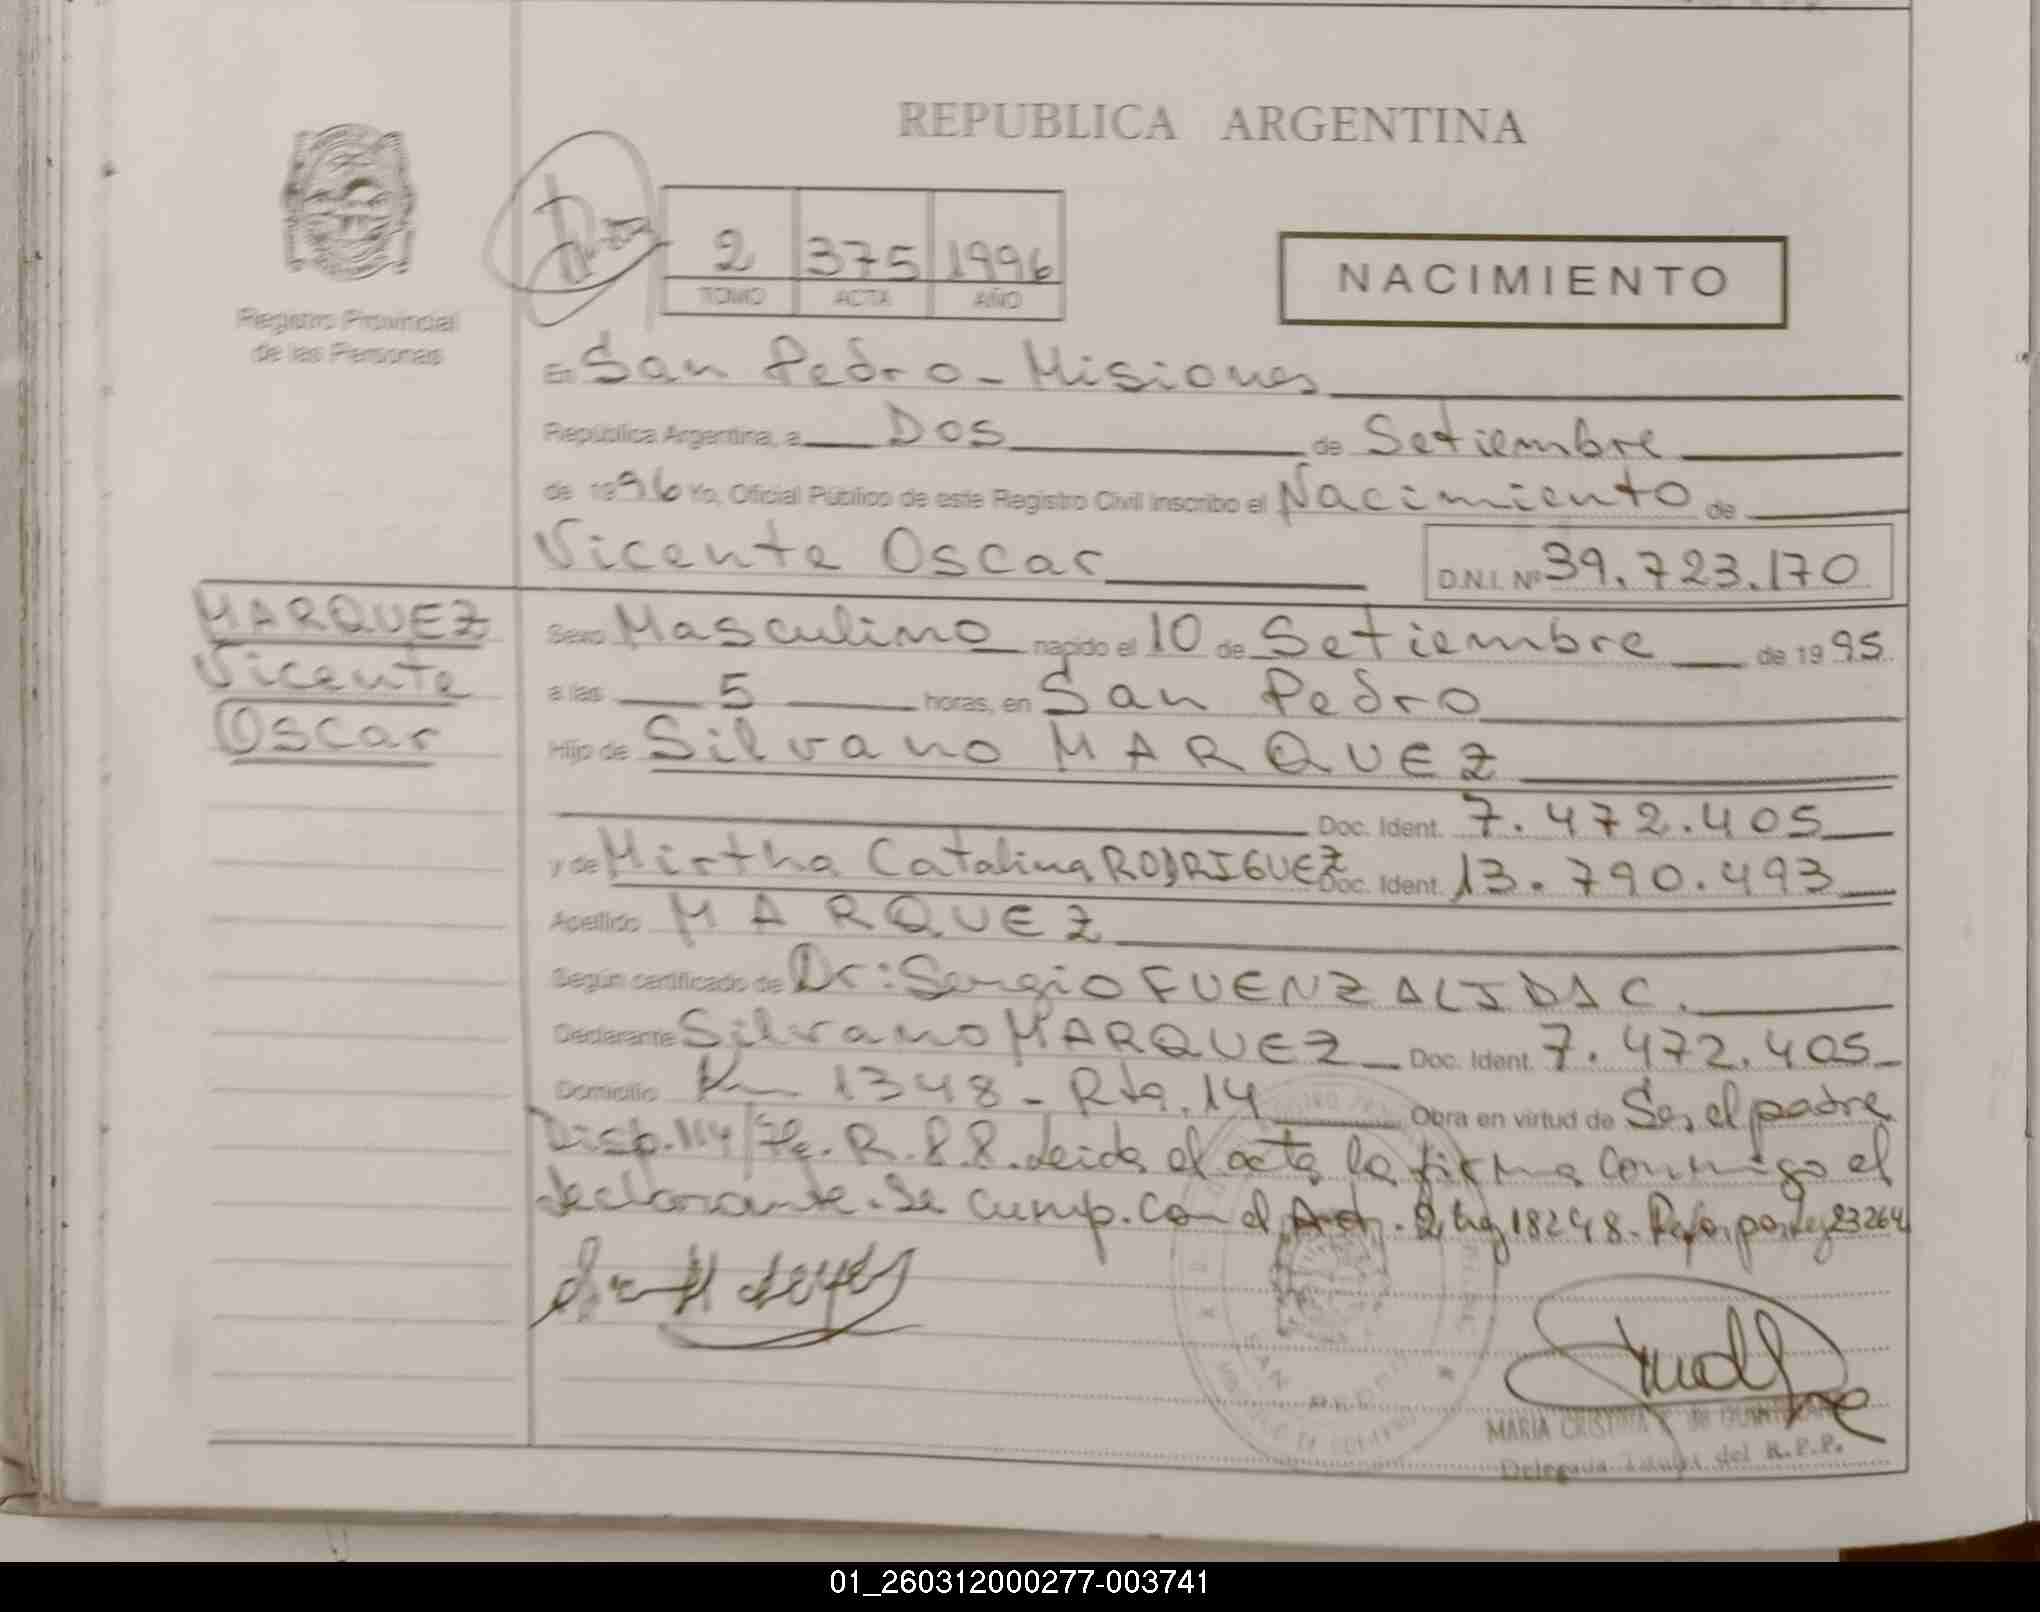 REPUBLICA ARGENTINA
2 375 1996
TOMO ACTA AÑO
NACIMIENTO
Registro Provincial
de las Personas
En San Pedro - Misiones
República Argentina, a Dos de Setiembre
de 1996 Yo, Oficial Público de este Registro Civil inscribo el Nacimiento de
Vicente Oscar D.N.I. Nº 39.723.170
MARQUEZ
Vicente
Oscar
Sexo Masculino nacido el 10 de Setiembre de 1995
a las 5 horas, en San Pedro
Hijo de Silvano MARQUEZ
Doc. Ident. 7.472.405
y de Mirtha Catalina RODRIGUEZ Doc. Ident. 13.790.493
Apellido MARQUEZ
Según certificado de Dr: Sergio FUENZALIDA C.
Declarante Silvano MARQUEZ Doc. Ident. 7.472.405
Domicilio Km 1348 - Rta. 14 Obra en virtud de Ser el padre
Disp. 114/ R.P.P. Leida el acta la firma conmigo el
declarante. Se cump. con el Art. 2 Ley 18248. Refor. por Ley 23264
SAN PEDRO
MARIA CRISTINA
Delegada del R.P.P.
01_260312000277-003741